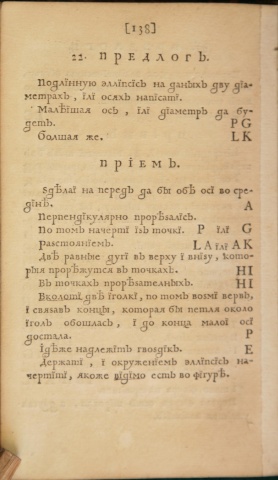 [138]
22. ПРЕДЛОГЪ.
Подлїнную эллїпсїсъ на даныхъ дву дїа-
метрахъ, їлї осяхъ напїсатї.
Малѣйшая ось, їлї дїаметръ да бу-
детъ. P G
большая же. L K
ПРЇЕМЪ.
Здѣлаї на передъ да бы обѣ осї во сре-
дїнѣ. A
Перпендїкулярно прорѣзалїсь.
По томъ начертї їзъ точкї. P їлї G
Разстоянїемъ. L A їлї A K
Двѣ равные дугї въ верху ї внїзу, кото-
рыя прорѣжутся въ точкахъ. HI
Въ точкахъ прорѣзателныхъ. HI
Вколотї двѣ їголкї, по томъ возмї вервь,
ї связавъ концы, которая бы петля около
їголъ обошлась, ї до конца малої осї
достала. P
Їдѣже надлежїтъ гвоздїкъ. E
Держатї, ї окруженїемъ эллїпсїсъ на-
чертїтї, якоже вїдїмо есть во фїгурѣ.